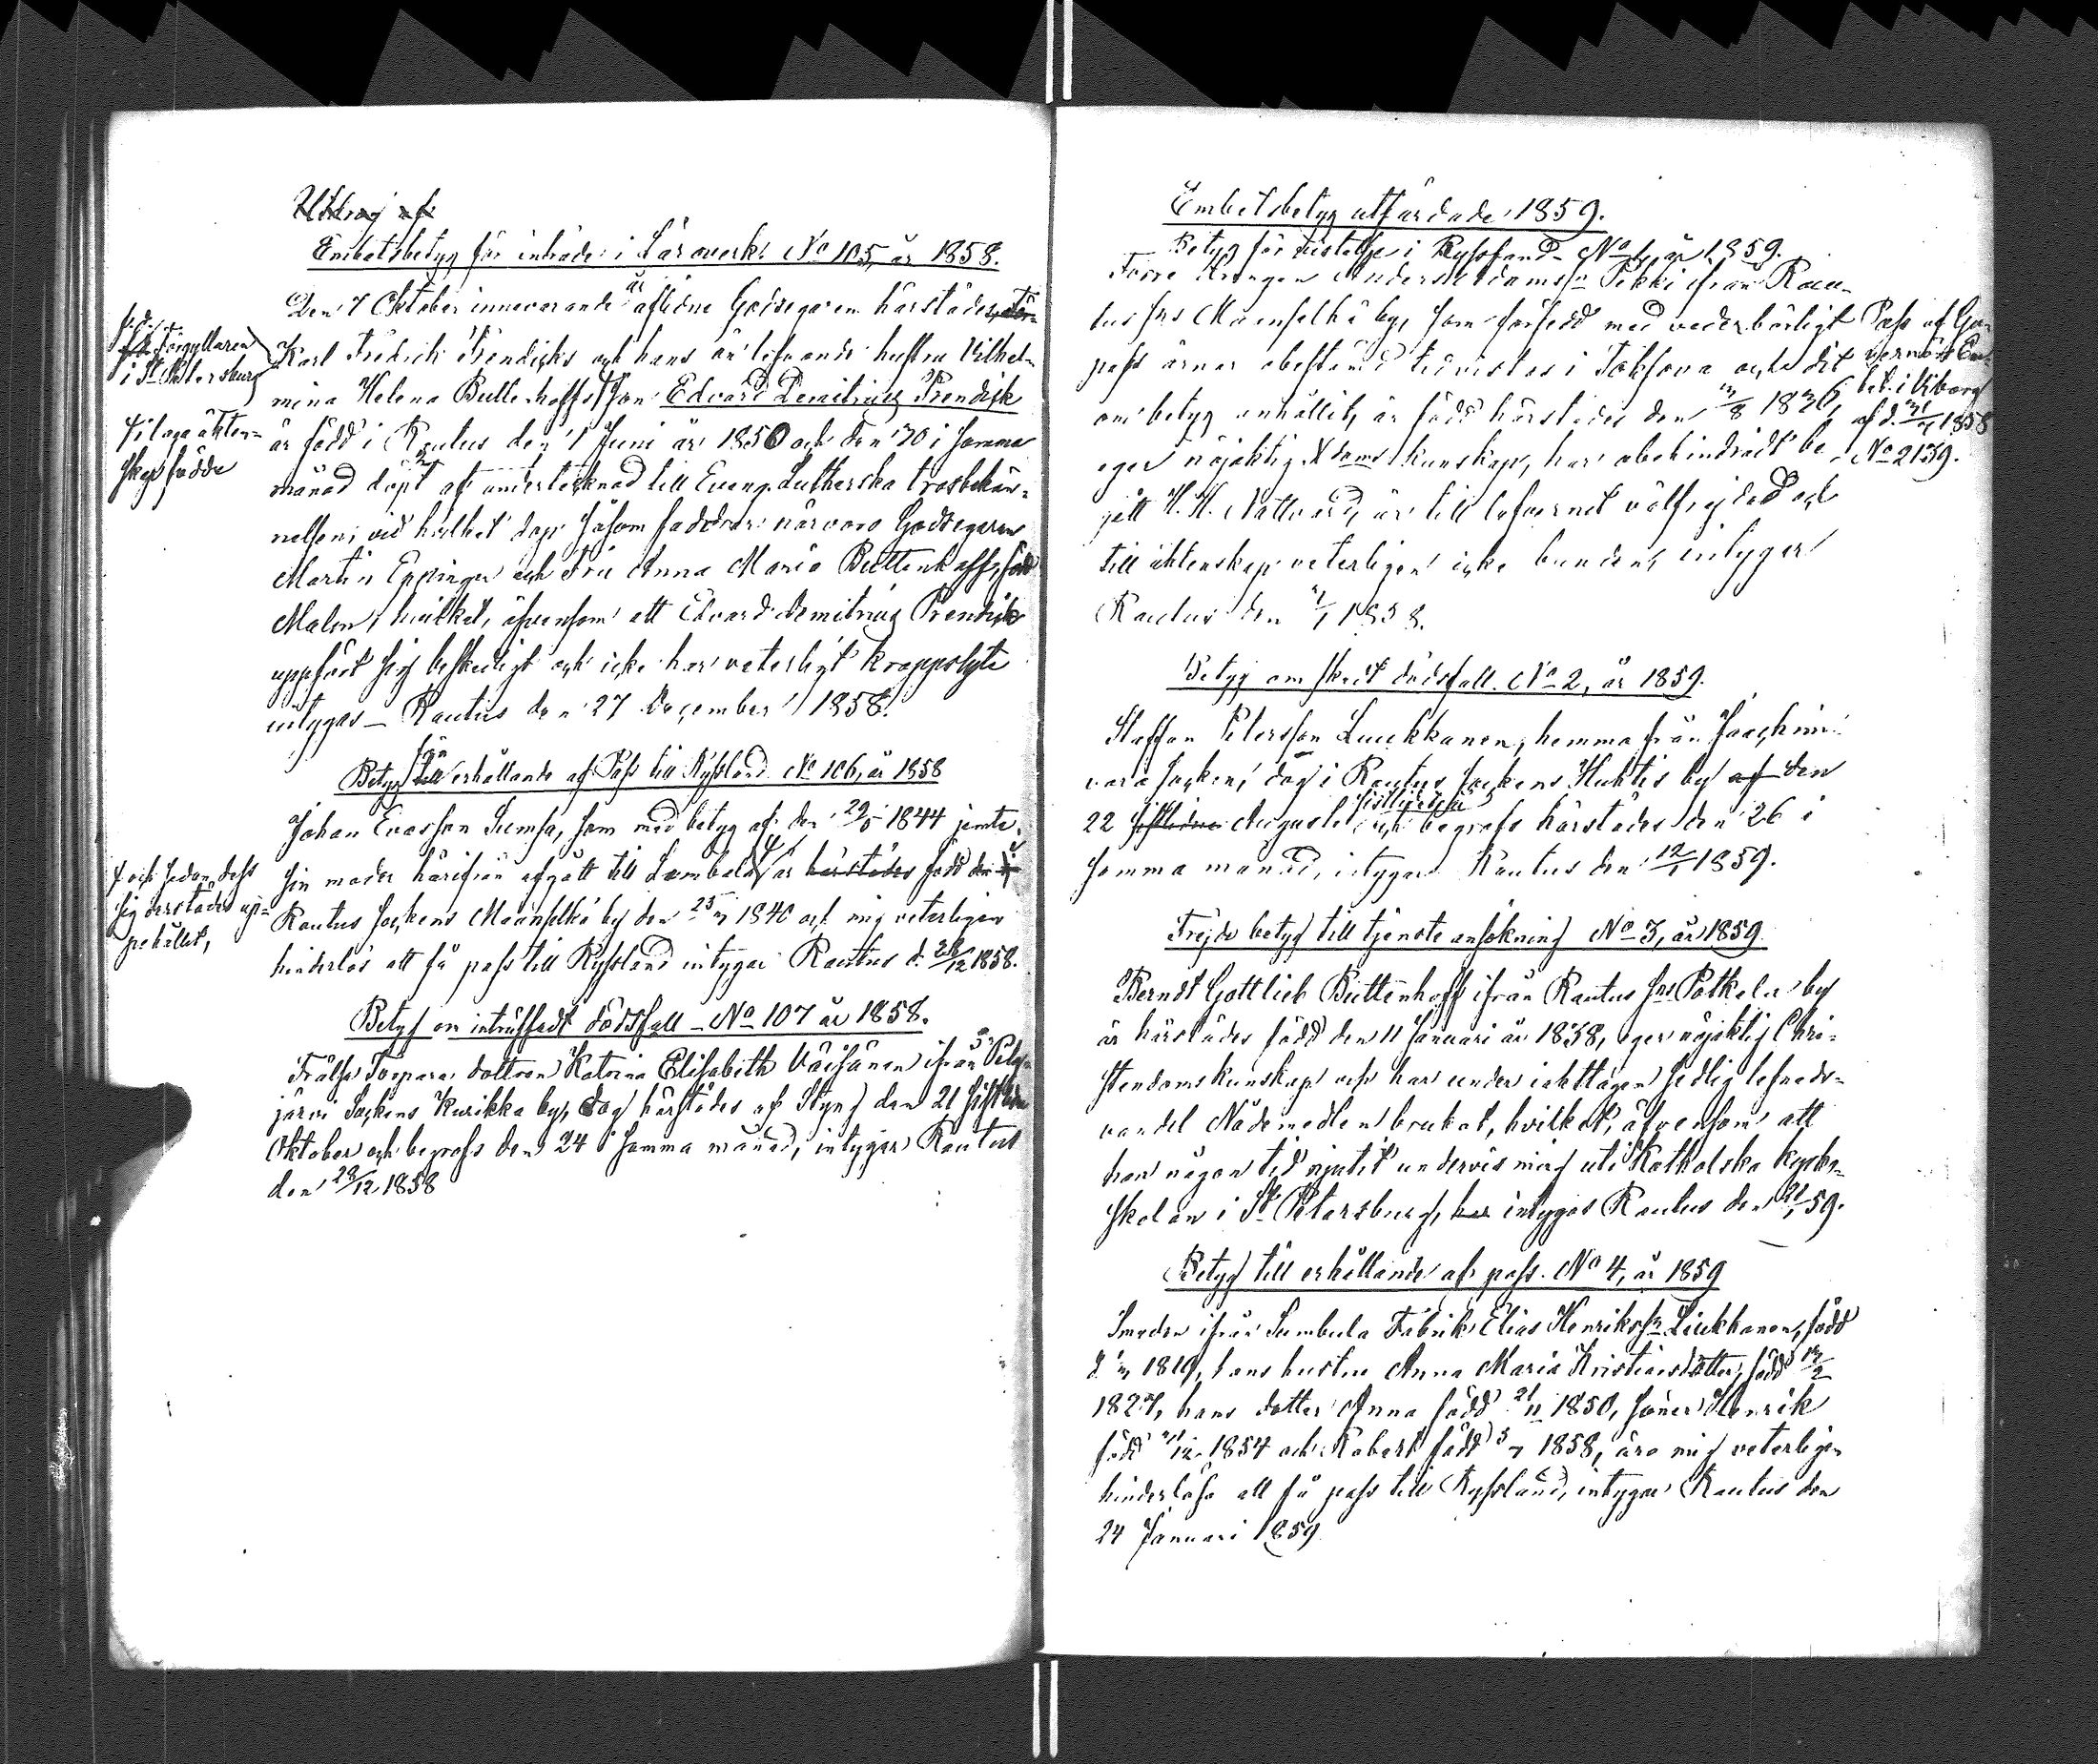 Utdrag af
Embetsbetyg för inträde i Läroverk. No 105, år 1858.
Den 7 Oktober innevarande år aflidne Godsegaren härstädes, För-
f. d. Förgyllaren
i St Petersburg
Karl Fredrik Frendicks och hans än lefvande hustru Vilhel-
mina Helena Buttenhoffs son Edvard Demitrius Prendick
i laga äkten-
skap födde
är född i Rautus den 1 Juni år 1850 och den 30 i samma
månad döpt af undertecknad till Evang. Lutherska trosbekän-
nelsen; vid hvilket dop såsom faddrar närvoro Godsegaren
Martin Eppinger och Fru Anna Maria Buttenhoff, född
Malm, hvilket, äfvensom att Edvard Demitrius Prendick
uppfört sig beskedligt och icke har veterligt kroppslyte
intygas — Rautus den 27 December 1858.
Betyg till för erhållande af Pass till Ryssland No 106, år 1858
Johan Evasson Sumsa, som med betyg af den 29/5 1844 jemte
sin moder härifrån afgått till Lembala, är härstädes född den i
och sedan dess
sig derstädes up-
pehållit,
Rautus sockens Maanselkä by den 25/7 1840 och mig veterligen
hinderlös att få pass till Ryssland intygar Rautus d. 28/12 1858.
Betyg om inträffadt dödsfall — No 107 år 1858.
Frälse Torpare dottren Katrina Elisabeth Väisänen ifrån Pyhä-
järvi Sockens Kurikka by, dog härstädes af Styng den 21 sistl.
Oktober och begrofs den 24 i samma månad, intygar Rautus
den 28/12 1858
Embetsbetyg utfärdade 1859.
Betyg för vistelse i Ryssland No 1, år 1859.
Förre Drängen Anders Adamssn Pekki ifrån Rau-
tus sns Maanselkä by, som försedd med vederbörligt
pass ärnar obestämd tid vistas i Toksova och dit
om betyg anhållit, är född härstädes den 13/8 1836,
Pass af Gu-
vernörs Em-
bet. i Viborg
af d. 31/7 1858
No 2139.
eger nöjaktig Xdoms kunskap, har obehindradt be-
gått H. H. Nattvard, är till lefvernet välfrejdad och
till äktenskap veterligen icke bunden, intygar
Rautus den 7/1 1858.
Betyg om skedt dödsfall. No 2, år 1859.
Staffan Petersson Luukkanen, hemma från Joachim-
vara socken, dog i Rautus sockens Huhtis by af den
22 sistlidne Augusti sistlidet år och begrofs härstädes den 26 i
samma månad, intygar Rautus den 12/1 1859.
Frejde betyg till tjenste ansökning No 3, år 1859
Berndt Gottlieb Buttenhoff ifrån Rautus sns Potkela by
är härstädes född den 11 Januari år 1838, eger nöjaktig Chri-
stendomskunskap och har under iakttagen sedlig lefnads-
vandel Nådemedlen brukat, hvilket, äfvensom att
han någon tid njutit undervisning uti Katholska kyrko-
skolan i St Petersburg, har intygas Rautus den 21/1 59.
Betyg till erhållande af pass. No 4, år 1859
Smeden ifrån Sumbula Fabrik Elias Henrikssn Liukkonen, född
1819, hans hustru Anna Maria Kristiansdotter, född 13/2
1827, hans dotter Anna född 21/11 1850, söner Henrik
född 12 1854 och Robert född 3/7 1858, äro mig veterligen
hinderlösa att få pass till Ryssland, intygar Rautus den
24 Januari 1859